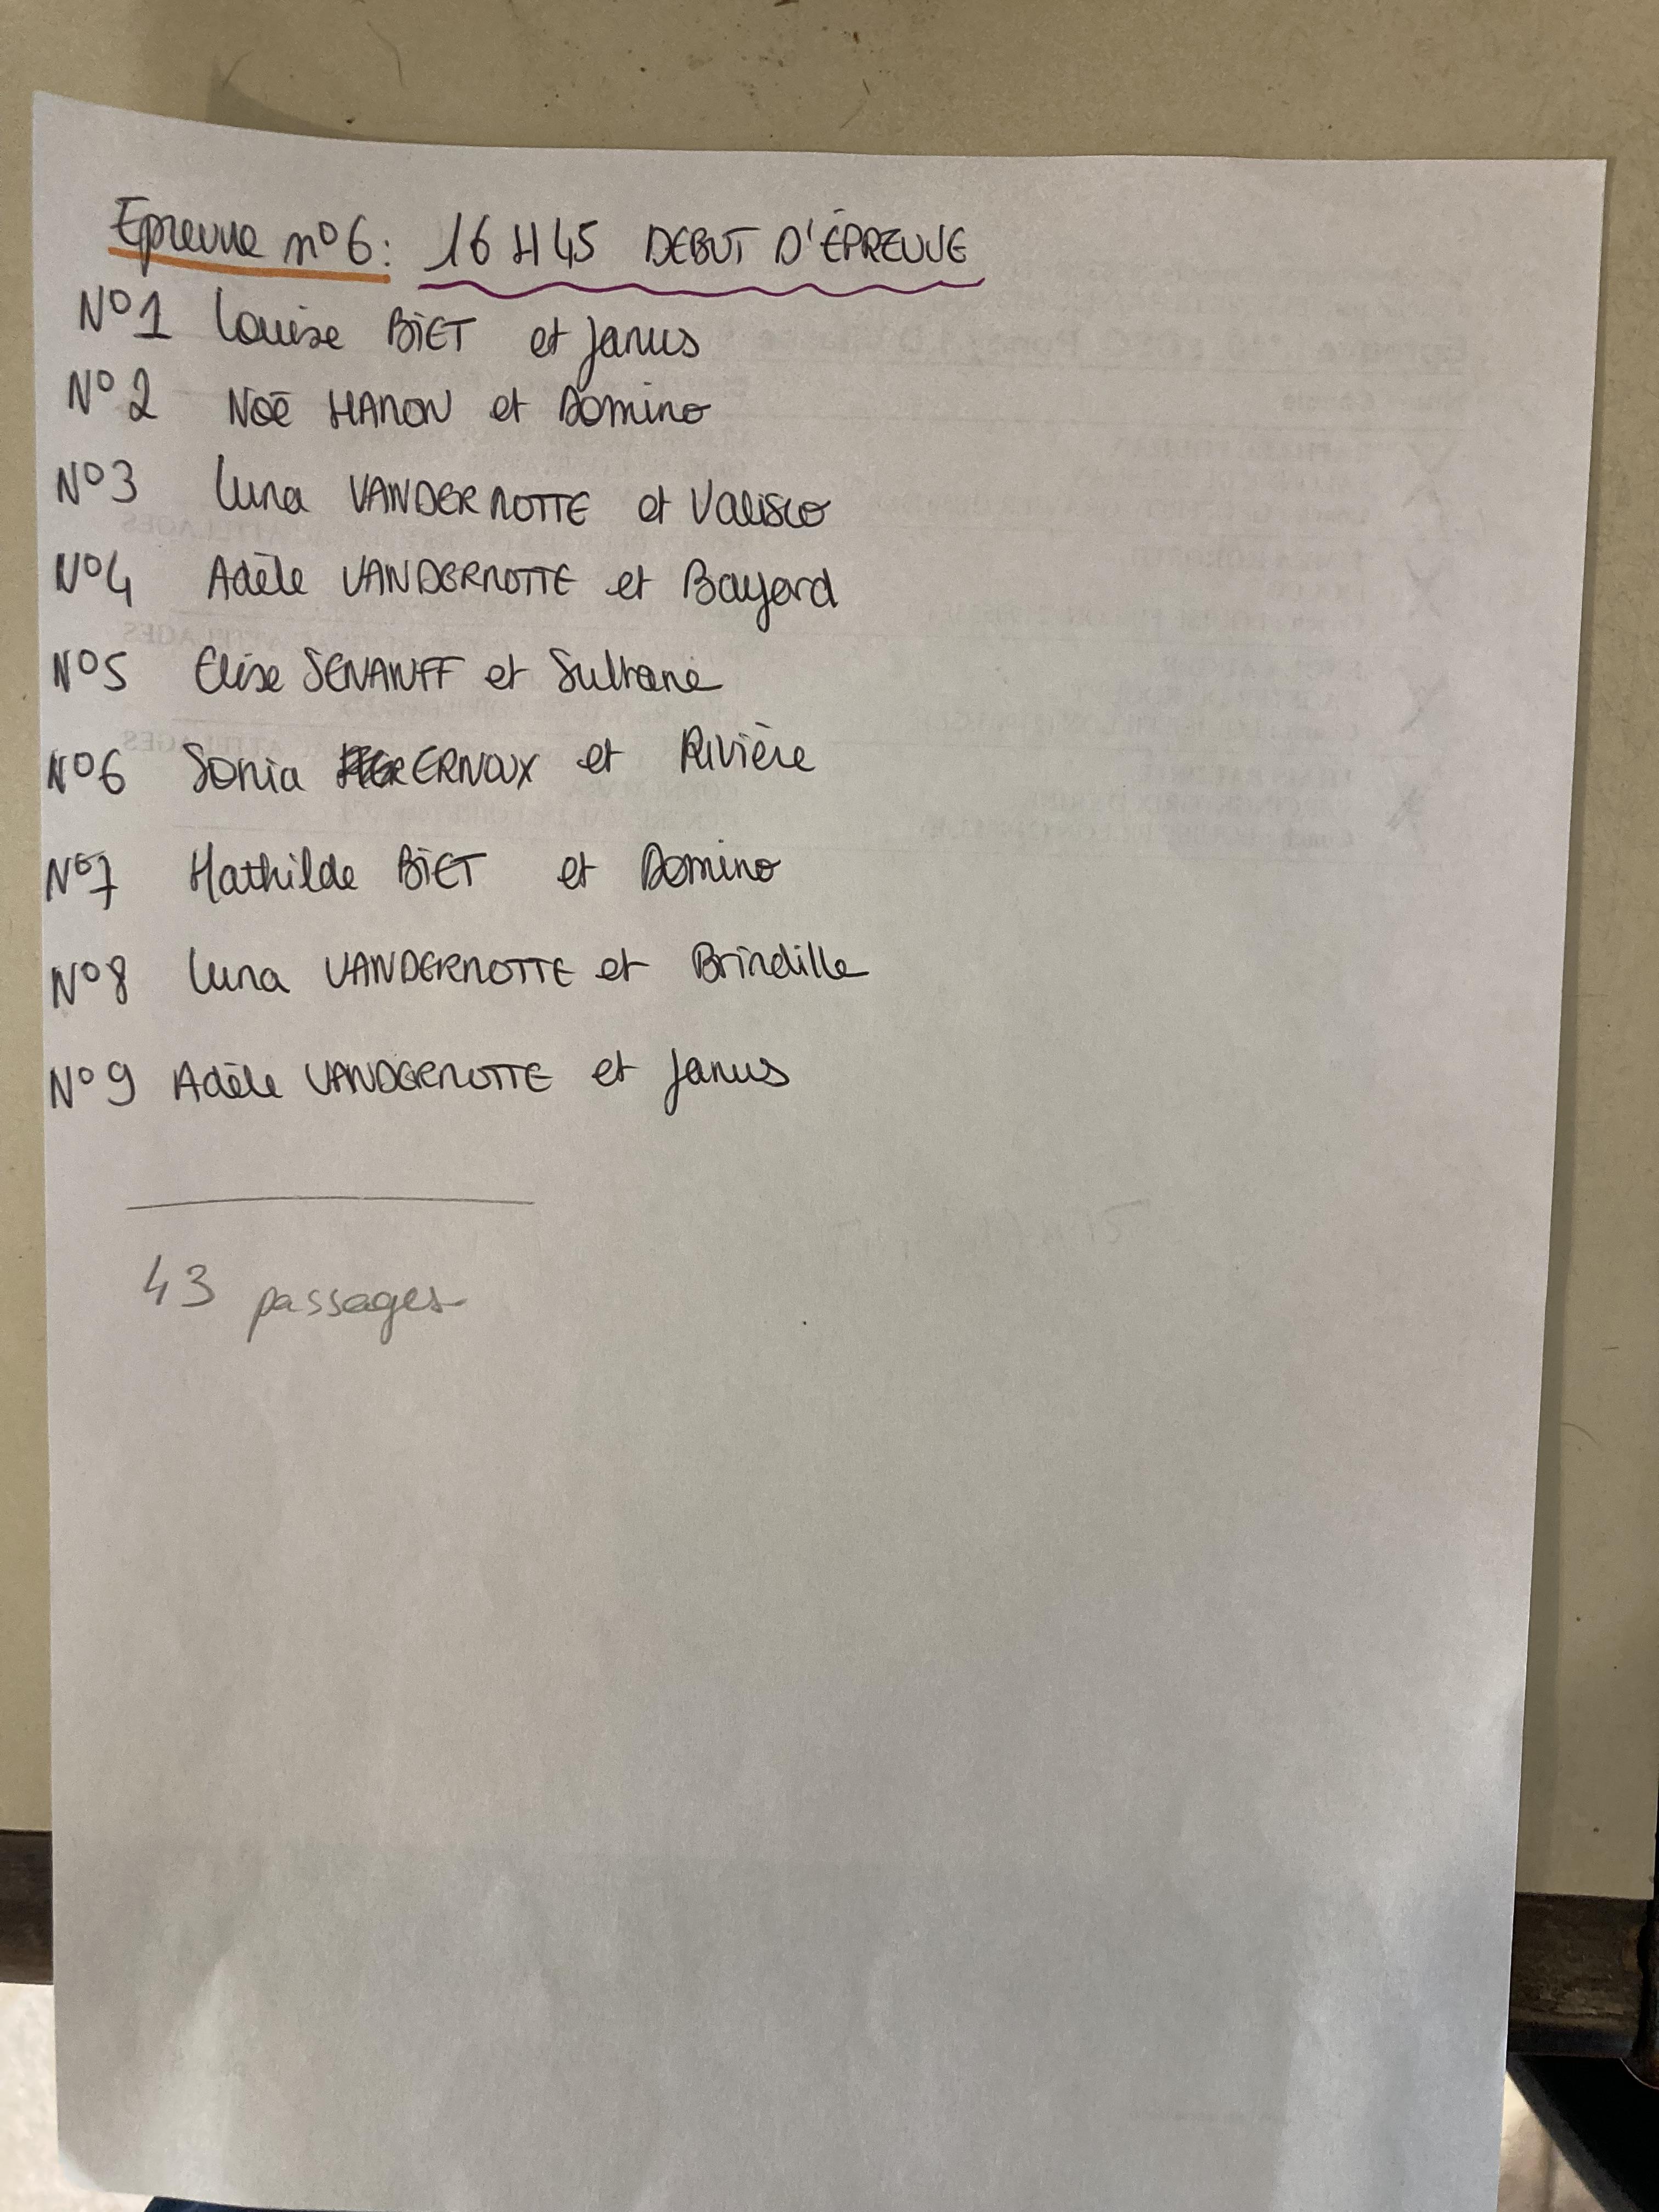 Epreuve n°6: 16H45 DEBUT D'ÉPREUVE
N°1 Louise BIET et Janus
N°2 Noé HANON et Domino
N°3 Luna VANDERNOTTE et Valisco
N°4 Adèle VANDERNOTTE et Bayard
N°5 Elise et Sultane
N°6 Sonia ERNOUX et Rivière
N°7 Mathilde BIET et Domino
N°8 Luna VANDERNOTTE et Brindille
N°9 Adèle VANDERNOTTE et Janus
43 passages